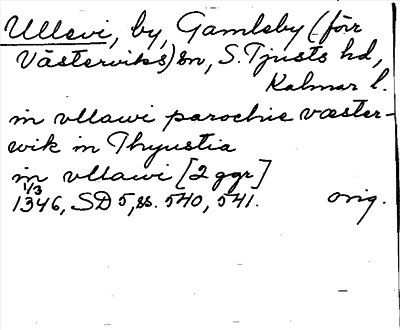 Ullevi, by, Gamleby (förr
Västerviks) sn, S. Tjusts hd,
Kalmar l.
in vllawi parochie væster-
wik in Thyustia
in vllawi [2 ggr]
1/3
1346, SD 5, ss. 540, 541. orig.